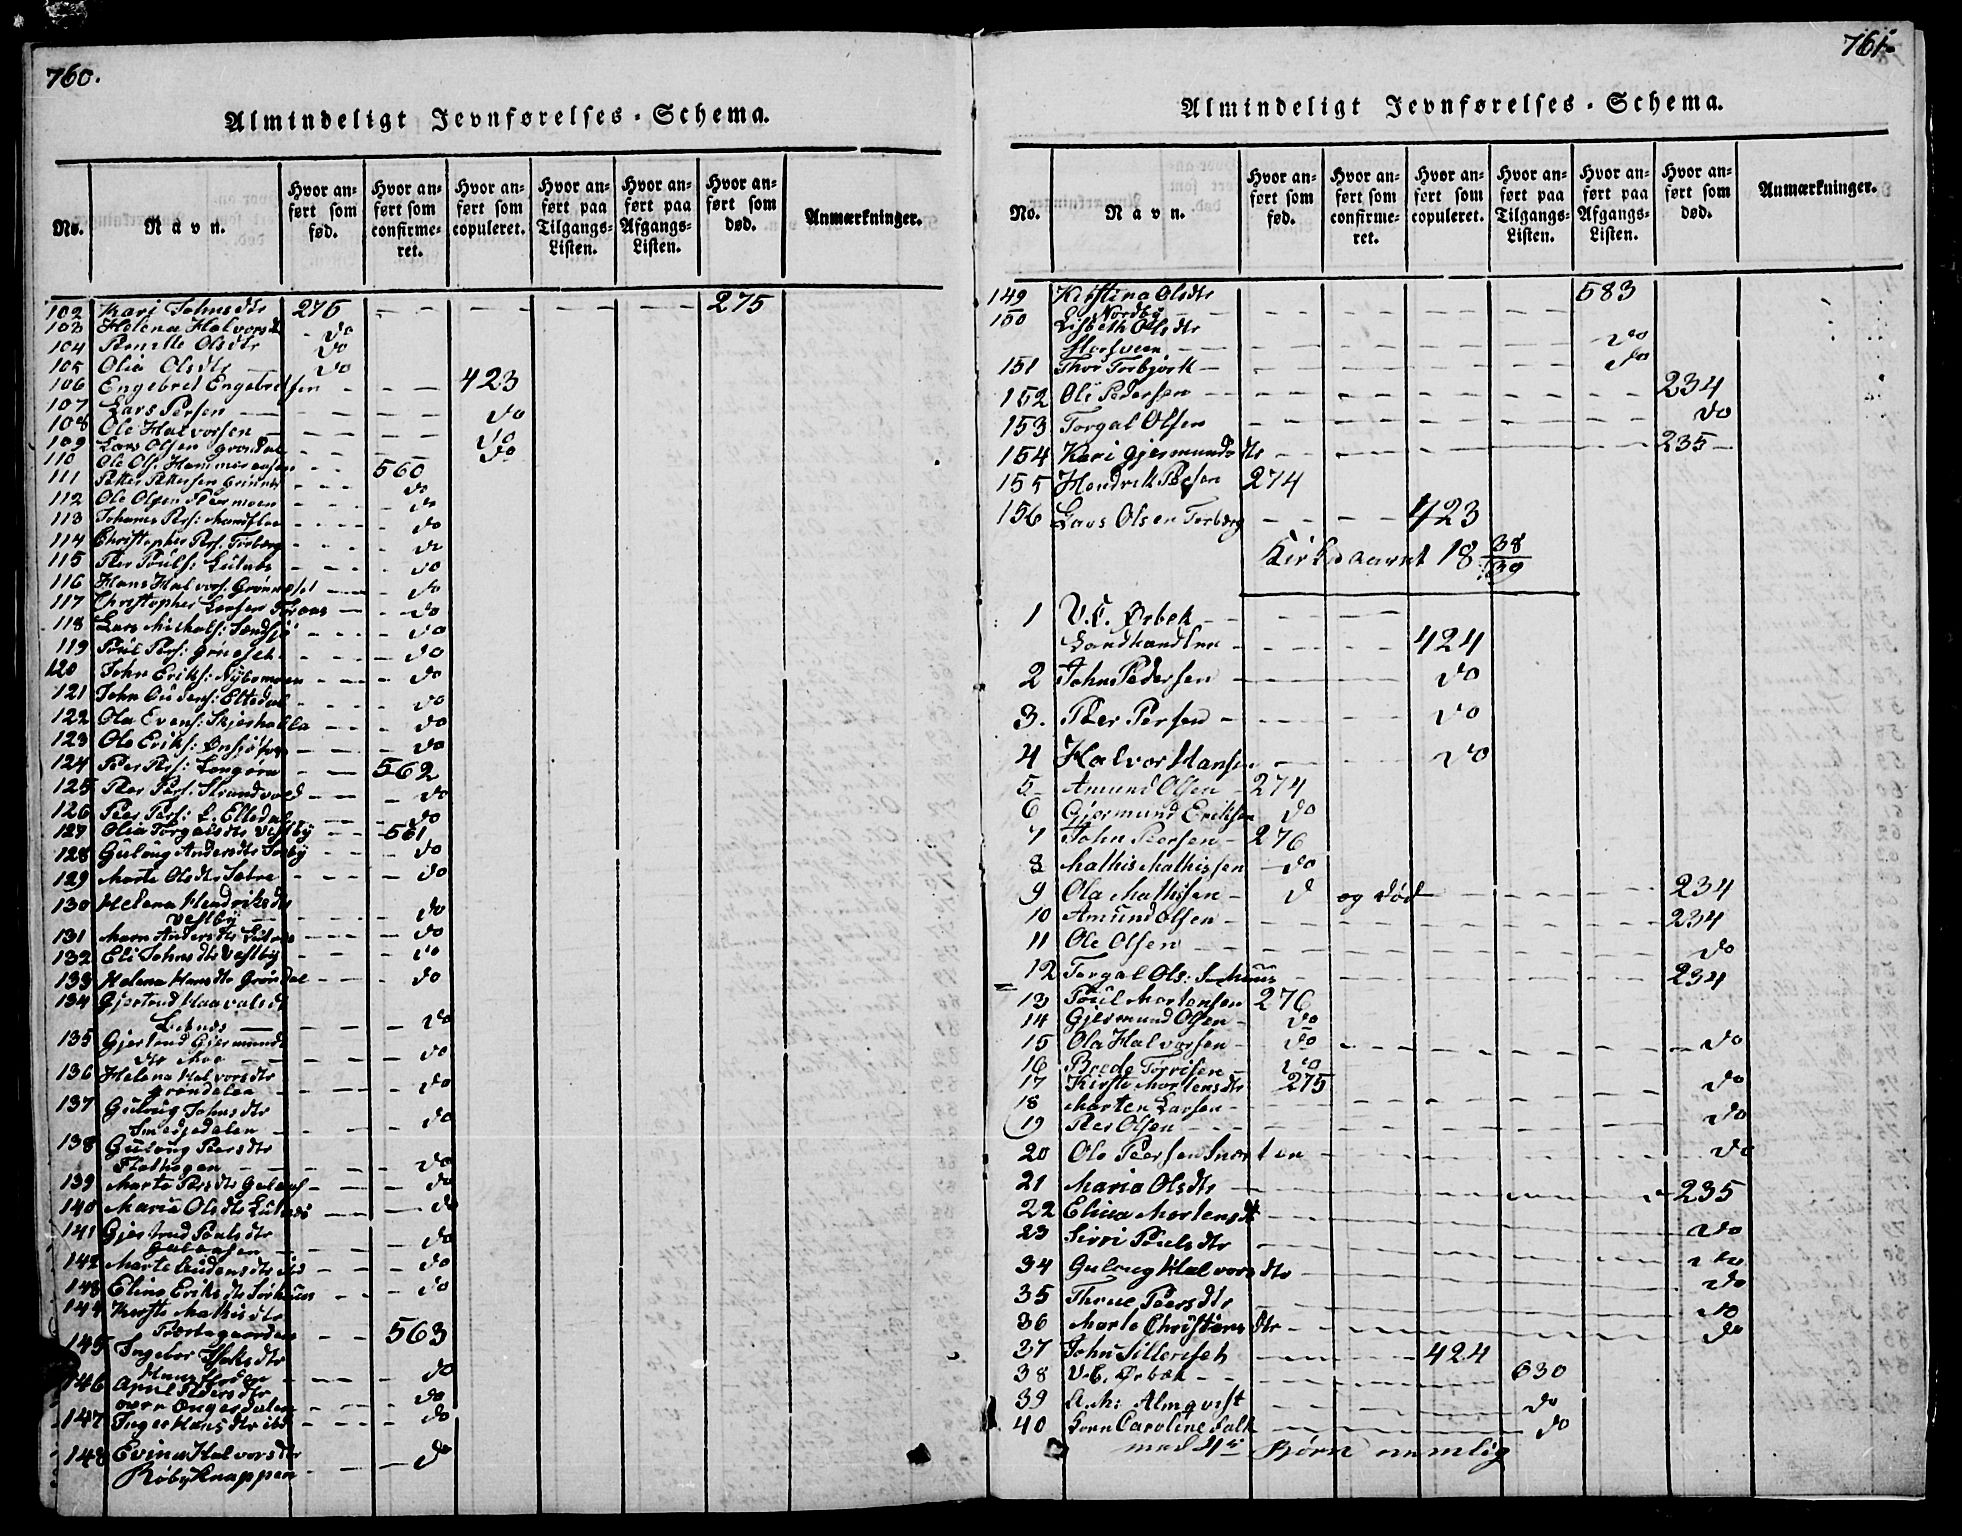 760.
Almindeligt Jevnførelses-Schema.
No. Navn. Hvor anført som fød. Hvor anført som confirmeret. Hvor anført som copuleret. Hvor anført paa Tilgangs-Listen. Hvor anført paa Afgangs-Listen. Hvor anført som død. Anmærkninger.
102 Kari Johnsdtr 276 275
103 Helena Halvorsd do
104 Pernille Olsdtr do
105 Olia Olsdtr do
106 Engebret Engebretsen 423
107 Lars Persen do
108 Ole Halvorsen do
109 Lars Olsen Grøndal do
110 Ole Ols. 560
111 Peter Petersen do
112 Ole Olsen do
113 Johannes Pers: do
114 Christopher Pers. Torberg do
115 Per Poüls: Lutnes do
116 Hans Halvors. Grønneset do
117 Christopher Larsen do
118 Lars Nichols: do
119 Poül Pers: do
120 John Eriks: Nybomoen do
121 John Eltedal do
122 Ola Evens: do
123 Ole Eriks: do
124 Peer Prs: 562
125 Per Pers: Strandvold do
126 Peer Pers: L. Eltedal do
127 Olia Torgalsdtr Vestby 561
128 Guloug Andersdtr do
129 Marte Olsdtr Sætre do
130 Helena Hendriksdtr
Vestby do
131 Maren Andersdtr Lutnes do
132 Eli Johnsdtr Vestby do
133 Helena Hansdtr Grøndal do
134 Gjertrud Haavalsdt
Lutnes do
135 Gjertrud Gjermunds
dtr Moe do
136 Helena Halvorsdtr
Grøndalen do
137 Guloug Johnsdtr
Smedjedalen do
138 Guloug Peersdtr
Flathagen do
139 Marte Persdtr do
140 Maria Olsdtr Lutnes do
141 Gjertrud Poulsdtr
do
142 Marte Audensdtr do
143 Eline Eriksdtr Sørhuus do
144 Kirste Mathisdtr
563
145 Ingebor
do
146 do
147 Inger Hansdtr ibd do
148 Evina Halvorsdtr
Røbyknappen do
761
Almindeligt Jevnførelses-Schema.
No. Navn. Hvor anført som fød. Hvor anført som confirmeret. Hvor anført som copuleret. Hvor anført paa Tilgangs-Listen. Hvor anført paa Afgangs-Listen. Hvor anført som død. Anmærkninger.
149 Kirstina Olsdtr 583
Nordby
150 Lisbeth Olsdtr
do
151 Thor Torbjørk do
152 Ole Pedersen 234
153 Torgal Olsen do
154 Kari Gjermundsdtr 235
155 Hendrik Persen 274
156 Lars Olsen Torberg 423
Kirkeaaret 18 38/39
1 V. C. Ørbek
Landhandler 424
2 John Pedersen do
3. Peer Persen do
4 Halvor Hansen do
5 Amund Olsen 274
6 Gjermund Eriksen do
7 John Peersen 276
8 Mathis Mathissen do
9 Ola Mathisen d og død 234
10 Amund Olsen 234
11 Ole Olsen do
12 Torgal Ols: 234
13 Poül Mortensen 276
14 Gjermund Olsen do
15 Ola Halvorsen do do
16 Brede do
17 Kirsti Mortensdtr 275 do
18 Morten Larsen do
19 Per Olsen
20 Ole Peersen do
21 Maria Olsdtr 235
22 Elina Mortensdt do
23 Sirri Poulsdtr do
34 Guloug Halvorsdtr do
35 Thrue Peersdtr do
36 Marte Christensdtr do
37 John Silleriset 424
38 V. C. Ørbæk 630
39 Almqvist do
40 Caroline Falk do
med 4re Børn nemlig